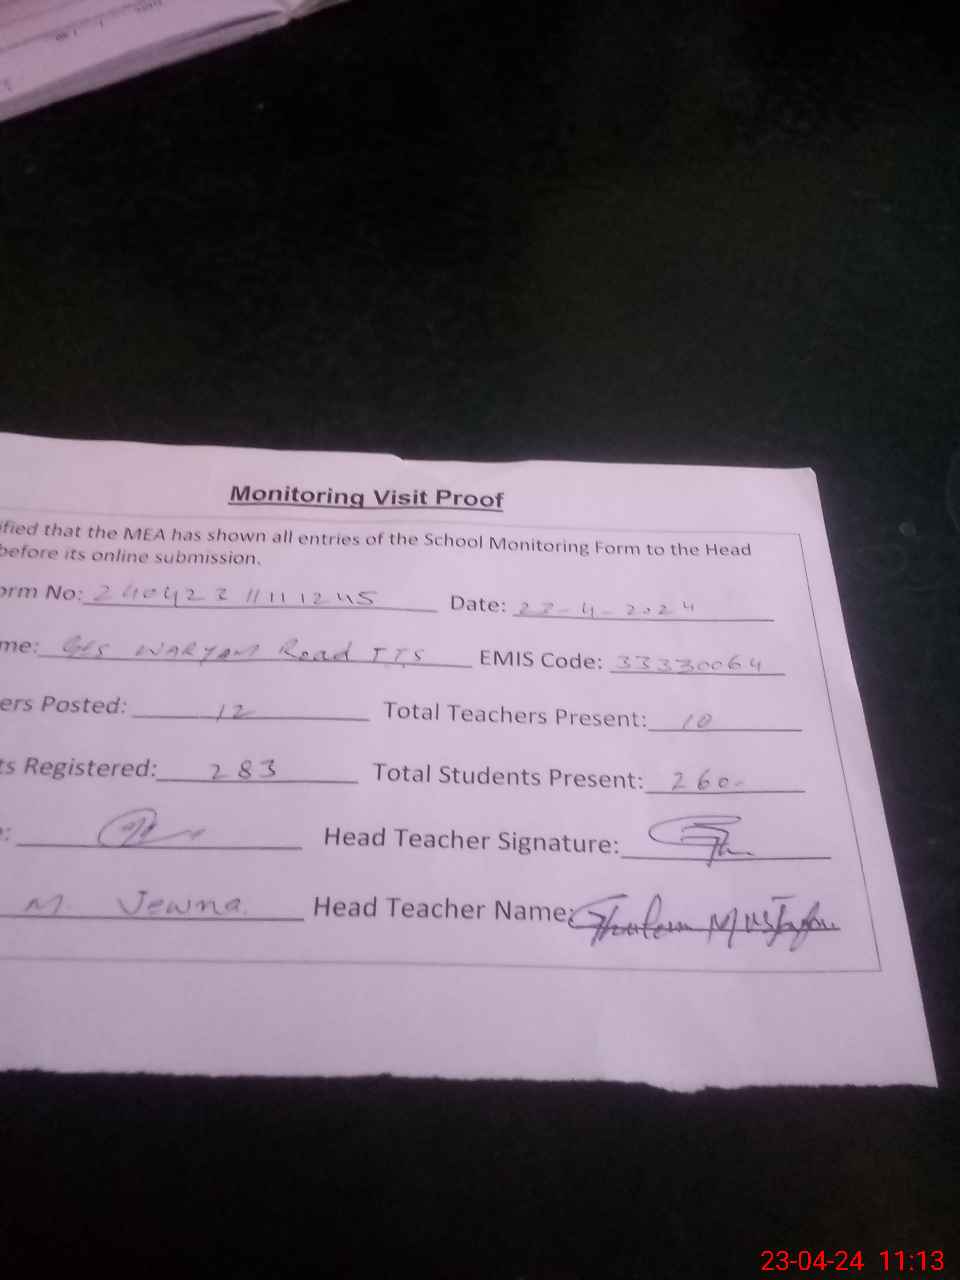 Monitoring Visit Proof
fied that the MEA has shown all entries of the School Monitoring Form to the Head
before its online submission.
orm No: 240423111111245 Date: 23-4-2024
me: GES WARYAM Road TTS EMIS Code: 33330064
ers Posted: 12 Total Teachers Present: 10
ts Registered: 283 Total Students Present: 260
: Head Teacher Signature:
M. Head Teacher Name: Ghulam Mustafa
23-04-24 11:13